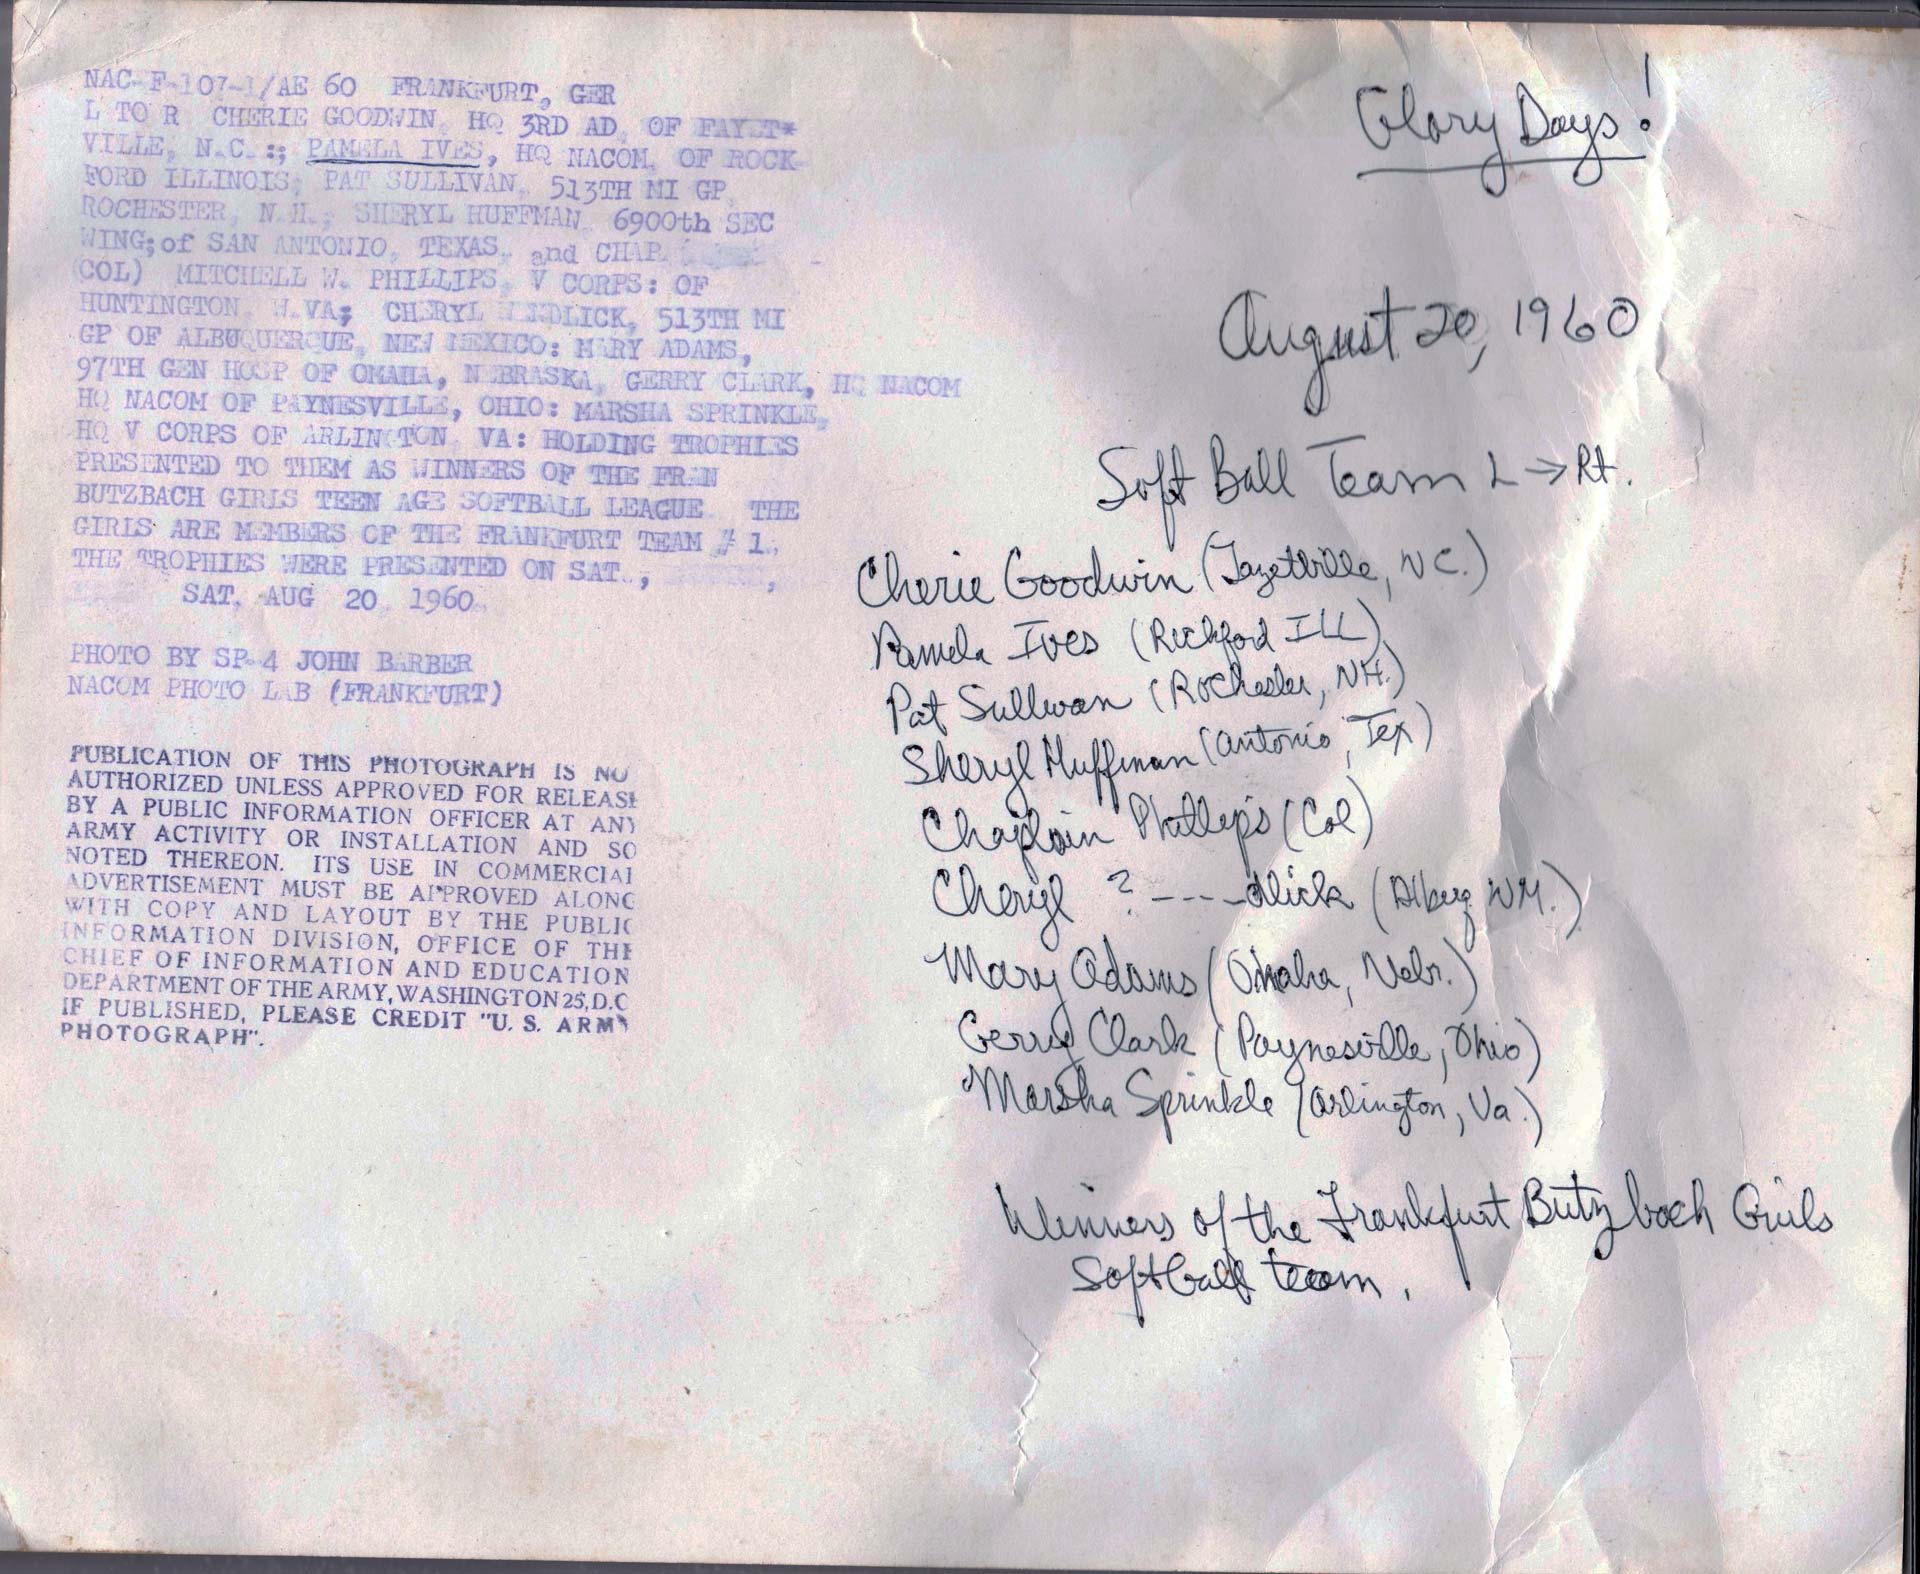 NAC-F-107-1/AE 60 FRANKFURT, GER
L TO R CHERIE GOODWIN, HQ 3RD AD, OF FAYET*
VILLE, N.C.:; PAMELA IVES, HQ NACOM, OF ROCK-
FORD ILLINOIS; PAT SULLIVAN, 513TH MI GP,
ROCHESTER, N.H.; SHERYL HUFFMAN, 6900th SEC
WING;of SAN ANTONIO, TEXAS, and CHAP.
(COL) MITCHELL W. PHILLIPS, V CORPS: OF
HUNTINGTON, W.VA; CHERYL 513TH MI
GP OF ALBUQUERQUE, NEW MEXICO: MARY ADAMS,
97TH GEN HOSP OF OMAHA, NEBRASKA, GERRY CLARK, HQ NACOM
HQ NACOM OF PAYNESVILLE, OHIO: MARSHA SPRINKLE,
HQ V CORPS OF ARLINGTON, VA: HOLDING TROPHIES
PRESENTED TO THEM AS WINNERS OF THE FRAN
BUTZBACH GIRLS TEEN AGE SOFTBALL LEAGUE. THE
GIRLS ARE MEMBERS OF THE FRANKFURT TEAM # 1.
THE TROPHIES WERE PRESENTED ON SAT., ,
SAT. AUG 20, 1960.
PHOTO BY SP-4 JOHN BARBER
NACOM PHOTO LAB (FRANKFURT)
PUBLICATION OF THIS PHOTOGRAPH IS NO
AUTHORIZED UNLESS APPROVED FOR RELEASE
BY A PUBLIC INFORMATION OFFICER AT ANY
ARMY ACTIVITY OR INSTALLATION AND SO
NOTED THEREON. ITS USE IN COMMERCIAL
ADVERTISEMENT MUST BE APPROVED ALONG
WITH COPY AND LAYOUT BY THE PUBLIC
INFORMATION DIVISION, OFFICE OF THE
CHIEF OF INFORMATION AND EDUCATION
DEPARTMENT OF THE ARMY, WASHINGTON 25, D.C
IF PUBLISHED, PLEASE CREDIT "U. S. ARMY
PHOTOGRAPH".
Glory Days!
August 20, 1960
Soft Ball Team L → Rt.
Cherie Goodwin (Fayettville, NC.)
Pamela Ives (Rockford ILL)
Pat Sullivan (Rochester, NH.)
Sheryl Huffman (Antonio, Tex)
Chaplain Phillips (Col)
Cheryl ? ----dlick (Albuq NM.)
Mary Adams (Omaha, Nebr.)
Gerry Clark (Paynesville, Ohio)
Marsha Sprinkle (Arlington, Va.)
Winners of the Frankfurt Butzbach Girls
Softball team.